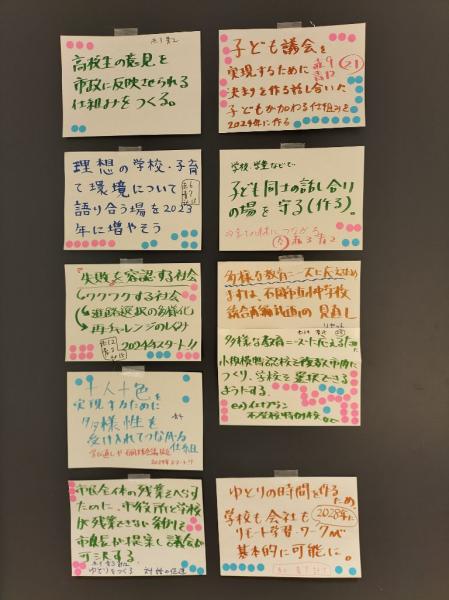 高校生の意見を
市政に反映させられる
仕組みをつくる。
子ども議会を
実現するために
決まりを作る話し合いに
子どもがかかわる仕組みを
2024年に作る
理想の学校・子育
て環境について
語り合う場を2023
年に増やそう
学校、学童などで
子ども同士の話し合い
の場を守る(作る)。
"失敗"を容認する社会
ワクワクする社会
進路選択の多様化
再チャレンジのしくみ
2024年スタート!!
多様な教育ニーズに応えるため
まずは、
市小中学校
統合再編計画の見直し
多様な教育ニーズに応えるため
小規模特認校を複数市内に
つくり、学校を選択できる
ようにする。
ex)イエナプラン
不登校特例校 など
十人十色を
実現するために
多様性を
受け入れてつながる
仕組
市役所全体の残業をへらす
ために、市役所と学校
が残業できない条例を
市長が提案し議会が
可決する
ゆとりをつくる 対話の促進
ゆとりの時間を作るため
学校も会社も
2025年に
リモート学習・ワークが
基本的に可能に。